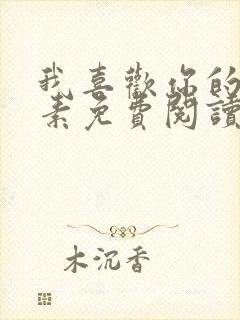 我喜歡你的
素免費閱讀
木沉香